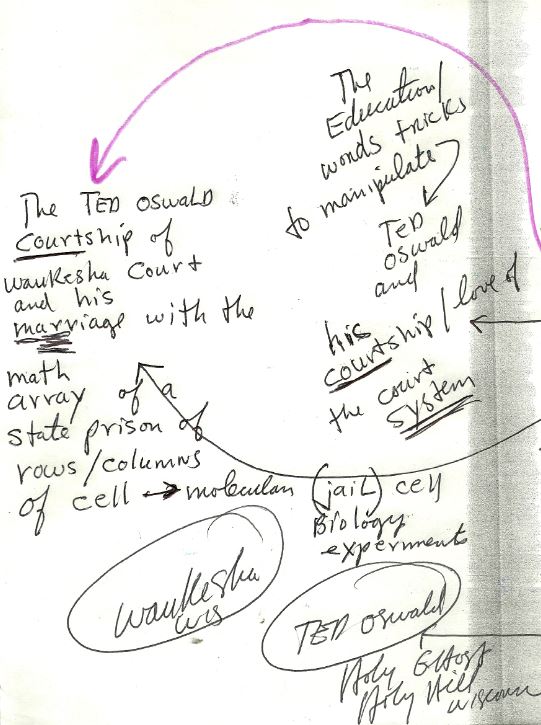 The
Education/
words tricks
to manipulate
TED
oswald
and
his
courtship/love of
the court
system
The TED OSWALD
courtship of
waukesha court
and his
marriage with the
math
array of a
state prison of
rows/columns
of cell → molecular (jail) cell
Biology
experiments
waukesha
wis
TED oswald
Holy Ghost
Holy Hill
wisconsin